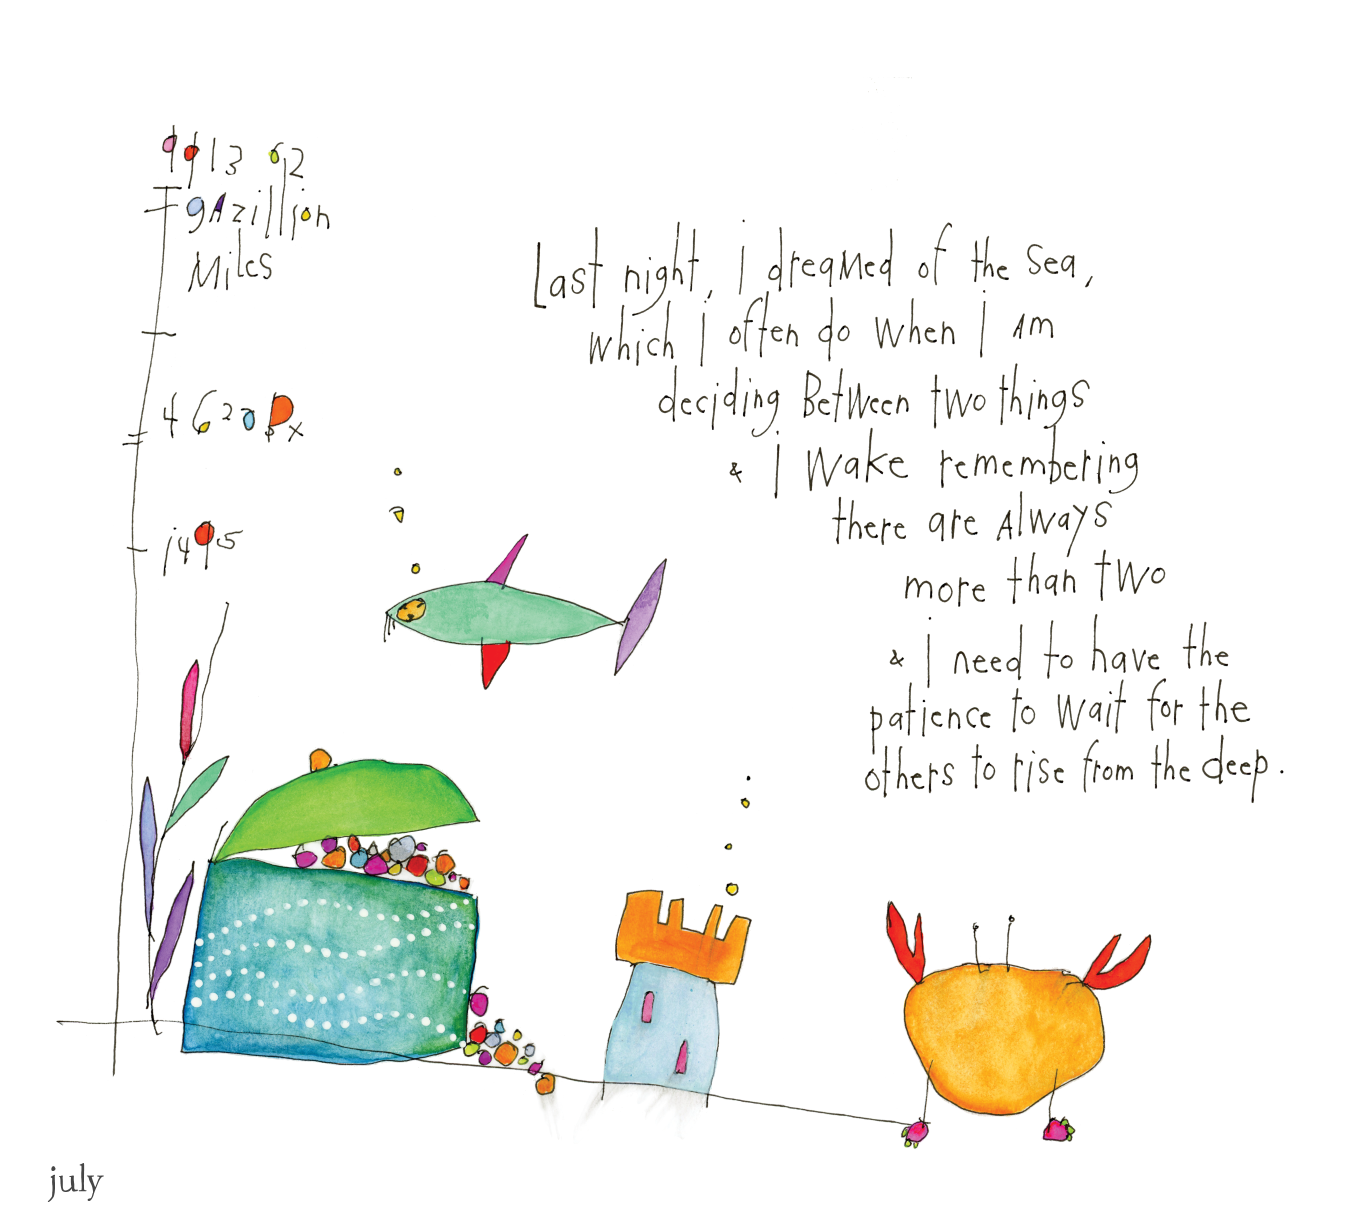 9913 62
gazillion
Miles
4620 Px
1495
Last night, i dreamed of the sea,
which i often do when i am
deciding Between two things
& i wake remembering
there are Always
more than two
& i need to have the
patience to wait for the
others to rise from the deep.
july